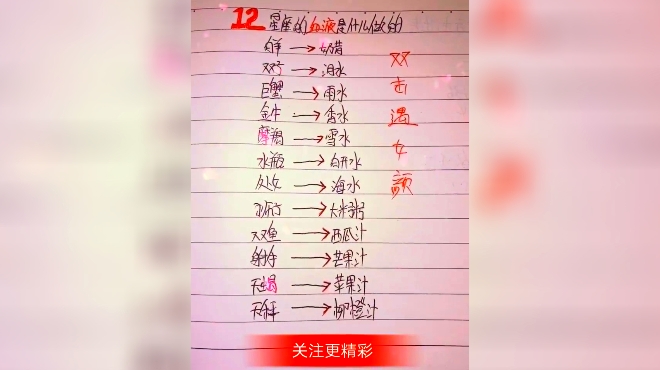 12星座的血液是什么做的
白羊→奶醋
双子→泪水
巨蟹→雨水
金牛→香水
摩羯→雪水
水瓶→白开水
处女→海水
狮子→大米粥
双鱼→西瓜汁
射手→芒果汁
天蝎→苹果汁
天秤→柳橙汁
双
击
遇
女
颜
关注更精彩